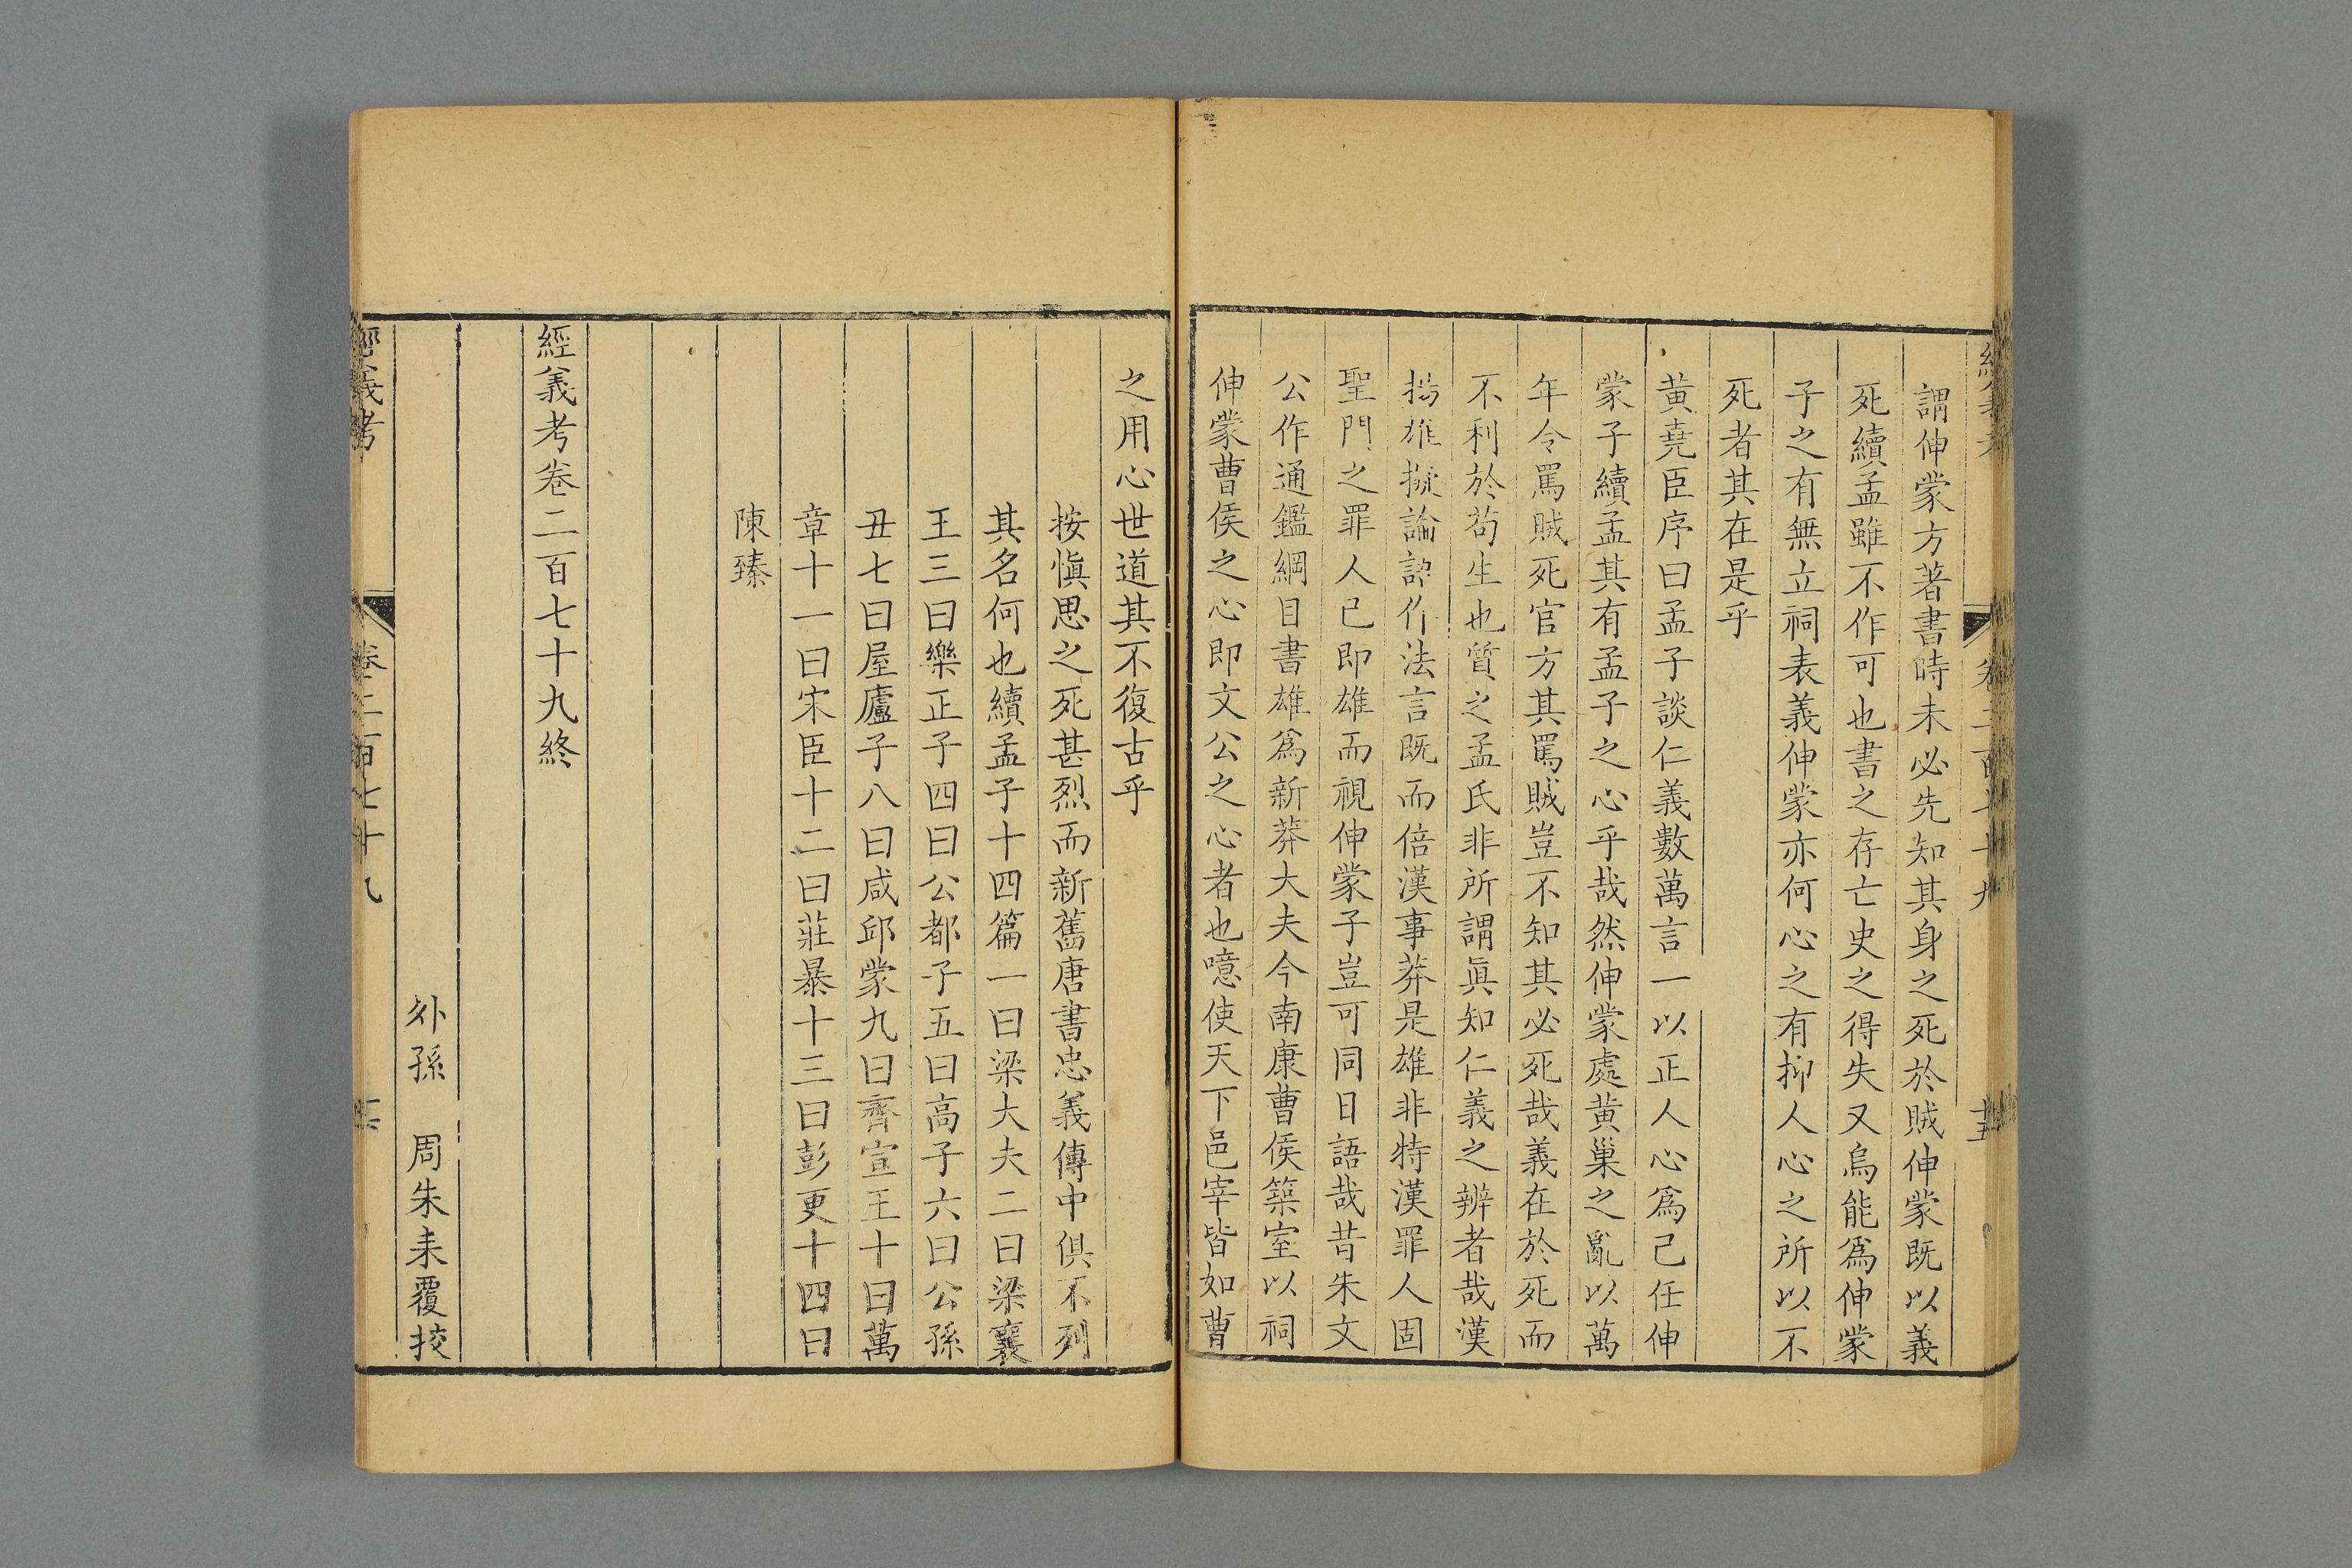 謂伸蒙方著書時未必先知其身之死於賊伸蒙既以義
死續孟雖不作可也書之存亡史之得失又烏能爲伸蒙
子之有無立祠表義伸蒙亦何心之有抑人心之所以不
死者其在是乎
黄堯臣序曰孟子談仁義數萬言一以正人心爲己任伸
蒙子續孟其有孟子之心乎哉然伸蒙處黄巢之亂以萬
年令罵賊死官方其罵賊豈不知其必死哉義在於死而
不利於苟生也質之孟氏非所謂眞知仁義之辨者哉漢
揚雄擬論語作法言既而倍漢事莽是雄非特漢罪人固
聖門之罪人已即雄而視伸蒙子豈可同日語哉昔朱文
公作通鑑綱目書雄爲新莽大夫今南康曹侯築室以祠
伸蒙曹侯之心即文公之心者也噫使天下邑宰皆如曹
之用心世道其不復古乎
按愼思之死甚烈而新舊唐書忠義傳中俱不列
其名何也續孟子十四篇一曰梁大夫二曰梁襄
王三曰樂正子四曰公都子五曰高子六曰公孫
丑七曰屋廬子八曰咸邱蒙九曰齊宣王十曰萬
章十一曰宋臣十二曰莊暴十三曰彭更十四曰
陳臻
經義考卷二百七十九終
外孫 周朱耒覆挍
經義考 卷二百七十九